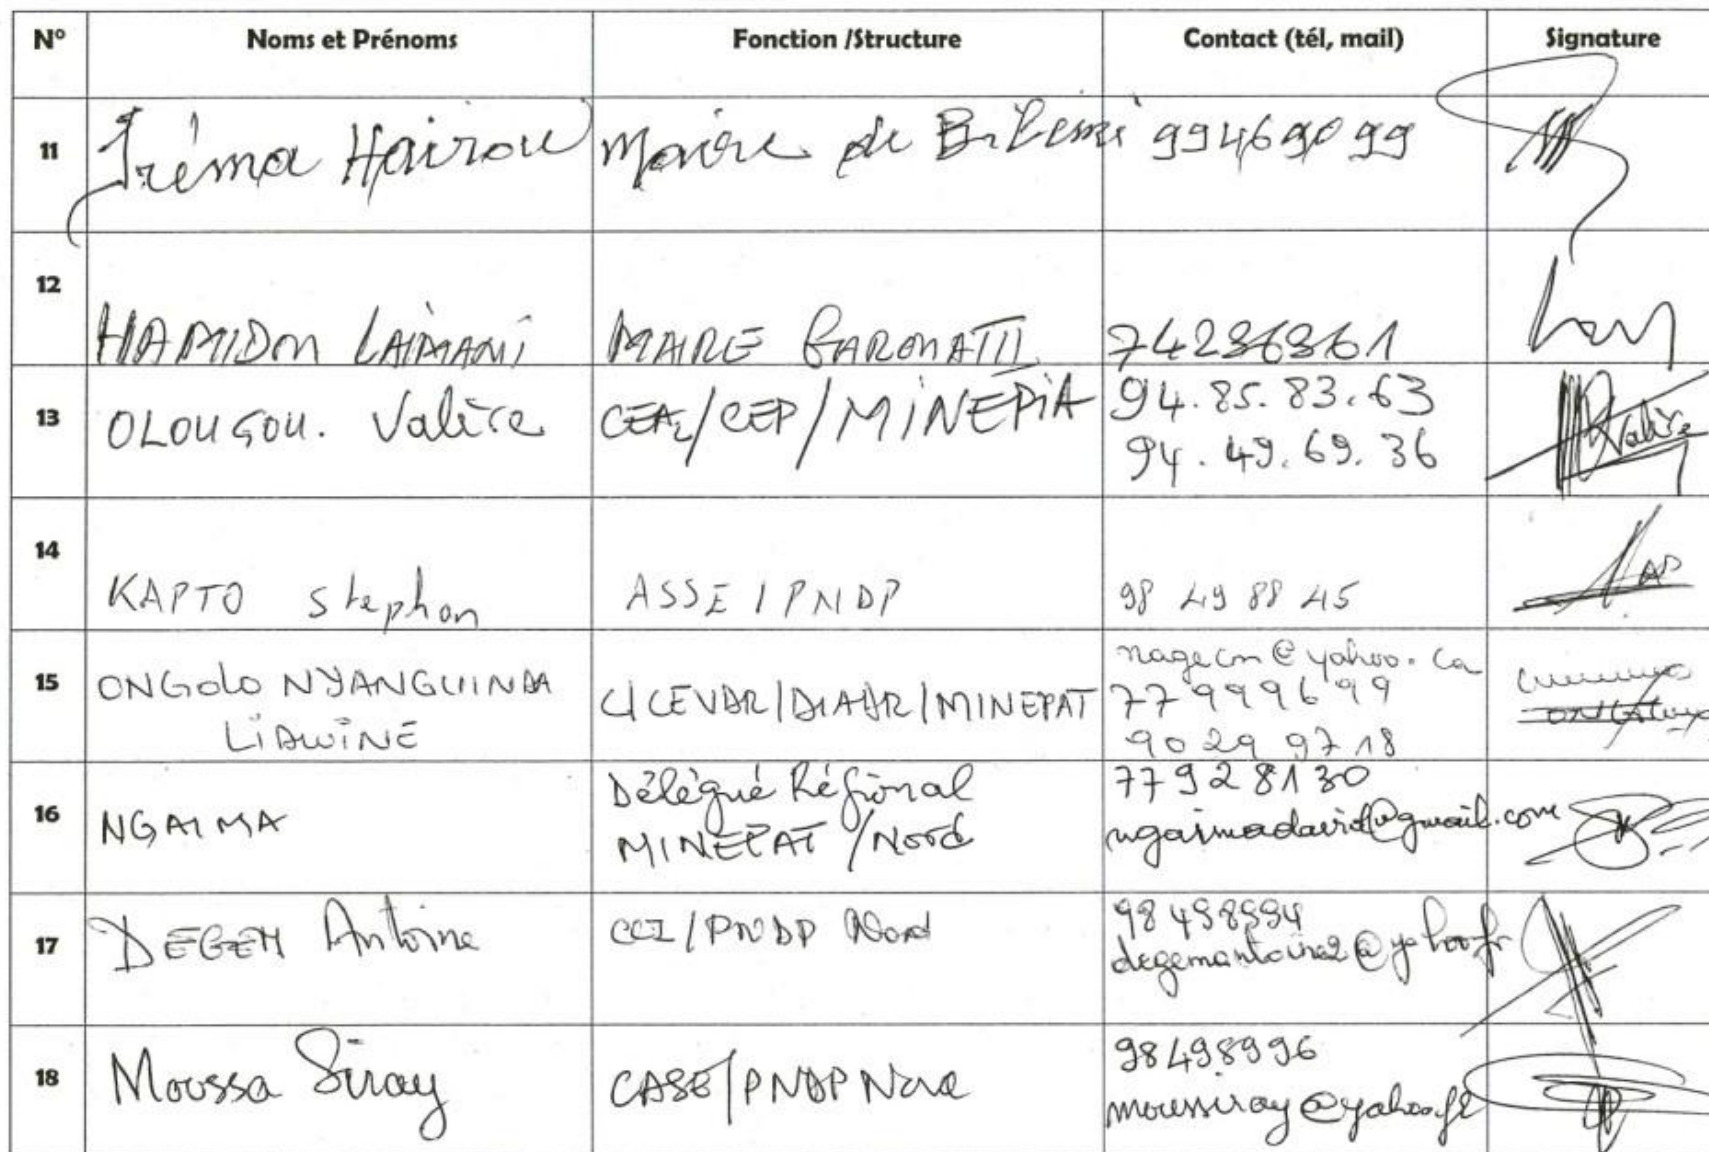 N° Noms et Prénoms Fonction /Structure Contact (tél, mail) Signature
11 Iréma Hairou Maire de Bibemi 99469099
12 HAMIDOU LAIMANI MAIRE GAROUA III 74236361
13 OLOUGOU. Valère CEA2/CEP/MINEPIA 94.85.83.63
94.49.69.36
Valère
14 KAPTO Stephan ASSE/PNDP 98 49 88 45
15 ONGOLO NYANGUINDA
LIDWINE
C/CEVDR/DIADR/MINEPAT
nagecm@yahoo.ca
77 999699
90 29 97 18
16 NGAIMA
Délégué Régional
MINEPAT /Nord
77928130
ngaimadavid@gmail.com
17 DEGEM Antoine CCI/PNDP Nord 98498994
degemantoine2@yahoo.fr
18 Moussa Siray CASE/PNDP Nord 98498996
moussiray@yahoo.fr